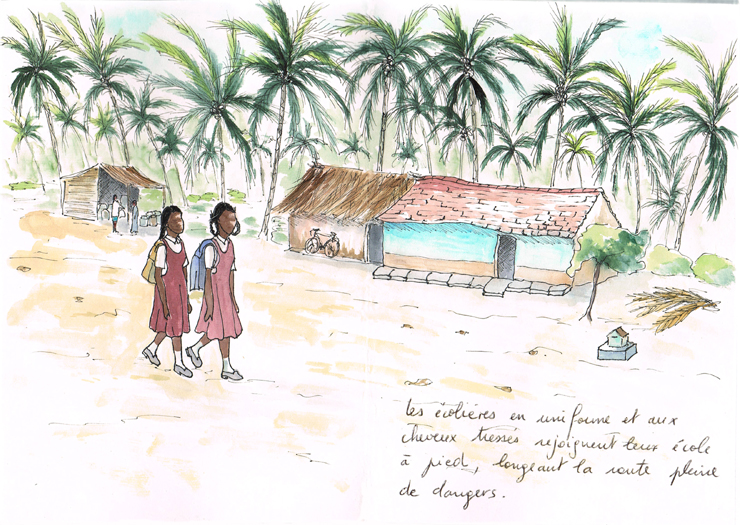 Les écolières en uniforme et aux
cheveux tressés rejoignent leur école
à pied, longeant la route pleine
de dangers.